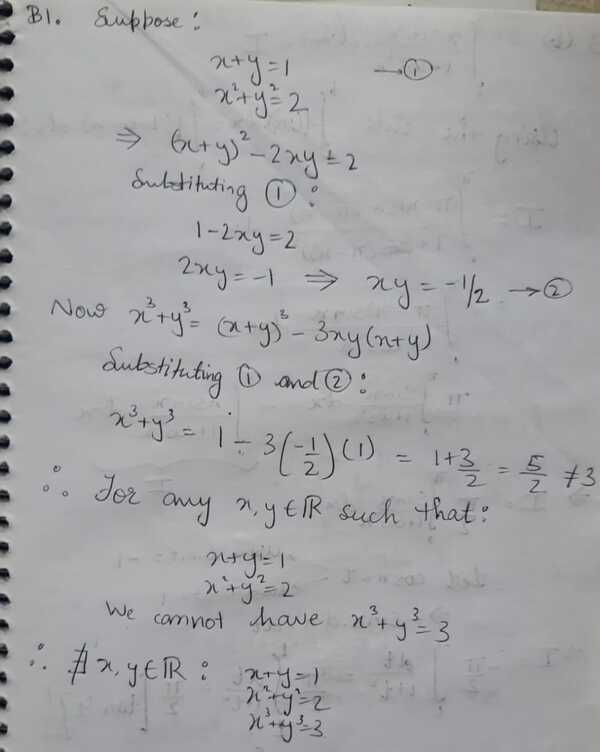 B1. Suppose:
x+y=1 → ①
x²+y²=2
⇒ (x+y)² - 2xy = 2
Substituting ①:
1-2xy=2
2xy=-1 ⇒ xy=-1/2 → ②
Now x³+y³= (x+y)³ - 3xy(x+y)
Substituting ① and ②:
x³+y³ = 1 - 3(-1/2)(1) = 1+3/2 = 5/2 ≠3
∴ For any x,y∈ℝ such that:
x+y=1
x²+y²=2
We cannot have x³+y³=3
∴ ∄ x,y∈ℝ: x+y=1
x²+y²=2
x³+y³=3